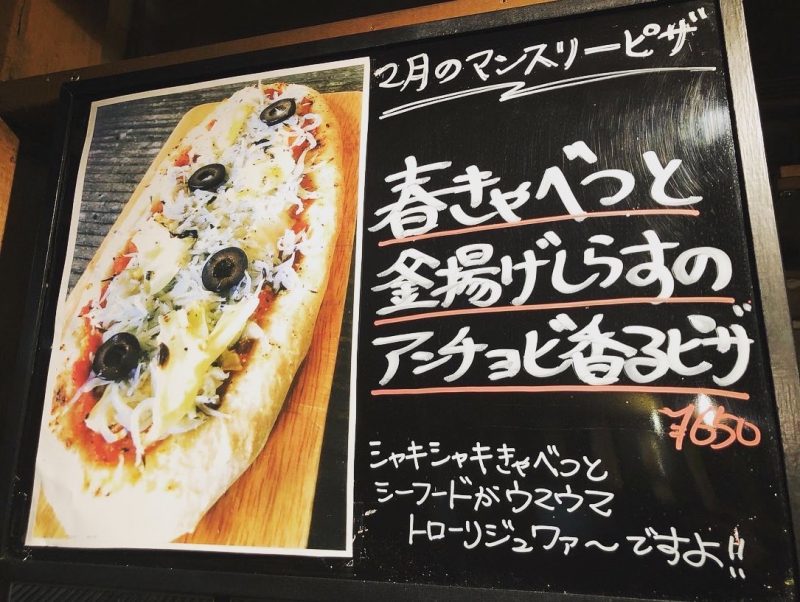 2月のマンスリーピザ
春きゃべつと
釜揚げしらすの
アンチョビ香るピザ
¥650
シャキシャキきゃべつと
シーフードがウマウマ
トローリジュワァ〜ですよ!!